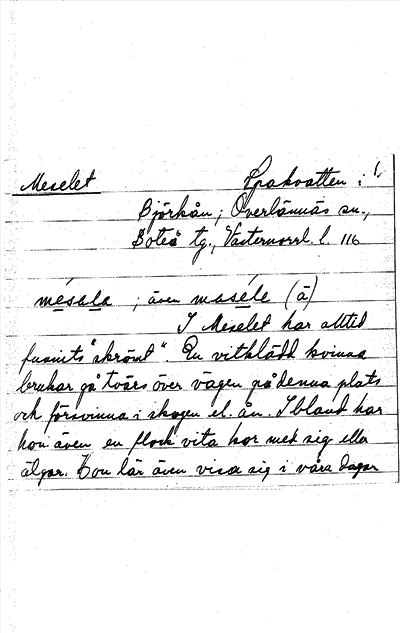 Meselet Spakvatten i 1,
Björkån, Överlännäs sn.,
Boteå tg., Västernorrl. l. 116
mésala, även maséle (ä)
I Meselet har alltid
funnits "skrömt". En vitklädd kvinna
brukar gå tvärs över vägen på denna plats
och försvinna i skogen el. ån. Ibland har
hon även en flock vita kor med sig eller
älgar. Hon lär även visa sig i våra dagar